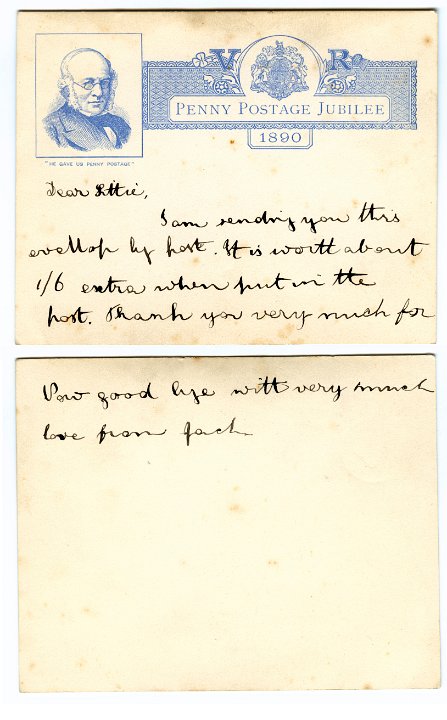 V R
PENNY POSTAGE JUBILEE
1890
"HE GAVE US PENNY POSTAGE"
Dear Ettie,
I am sending you this
evellop by post. It is worth about
1/6 extra when put in the
post. Thank you very much for
good bye with very much
love from Jack